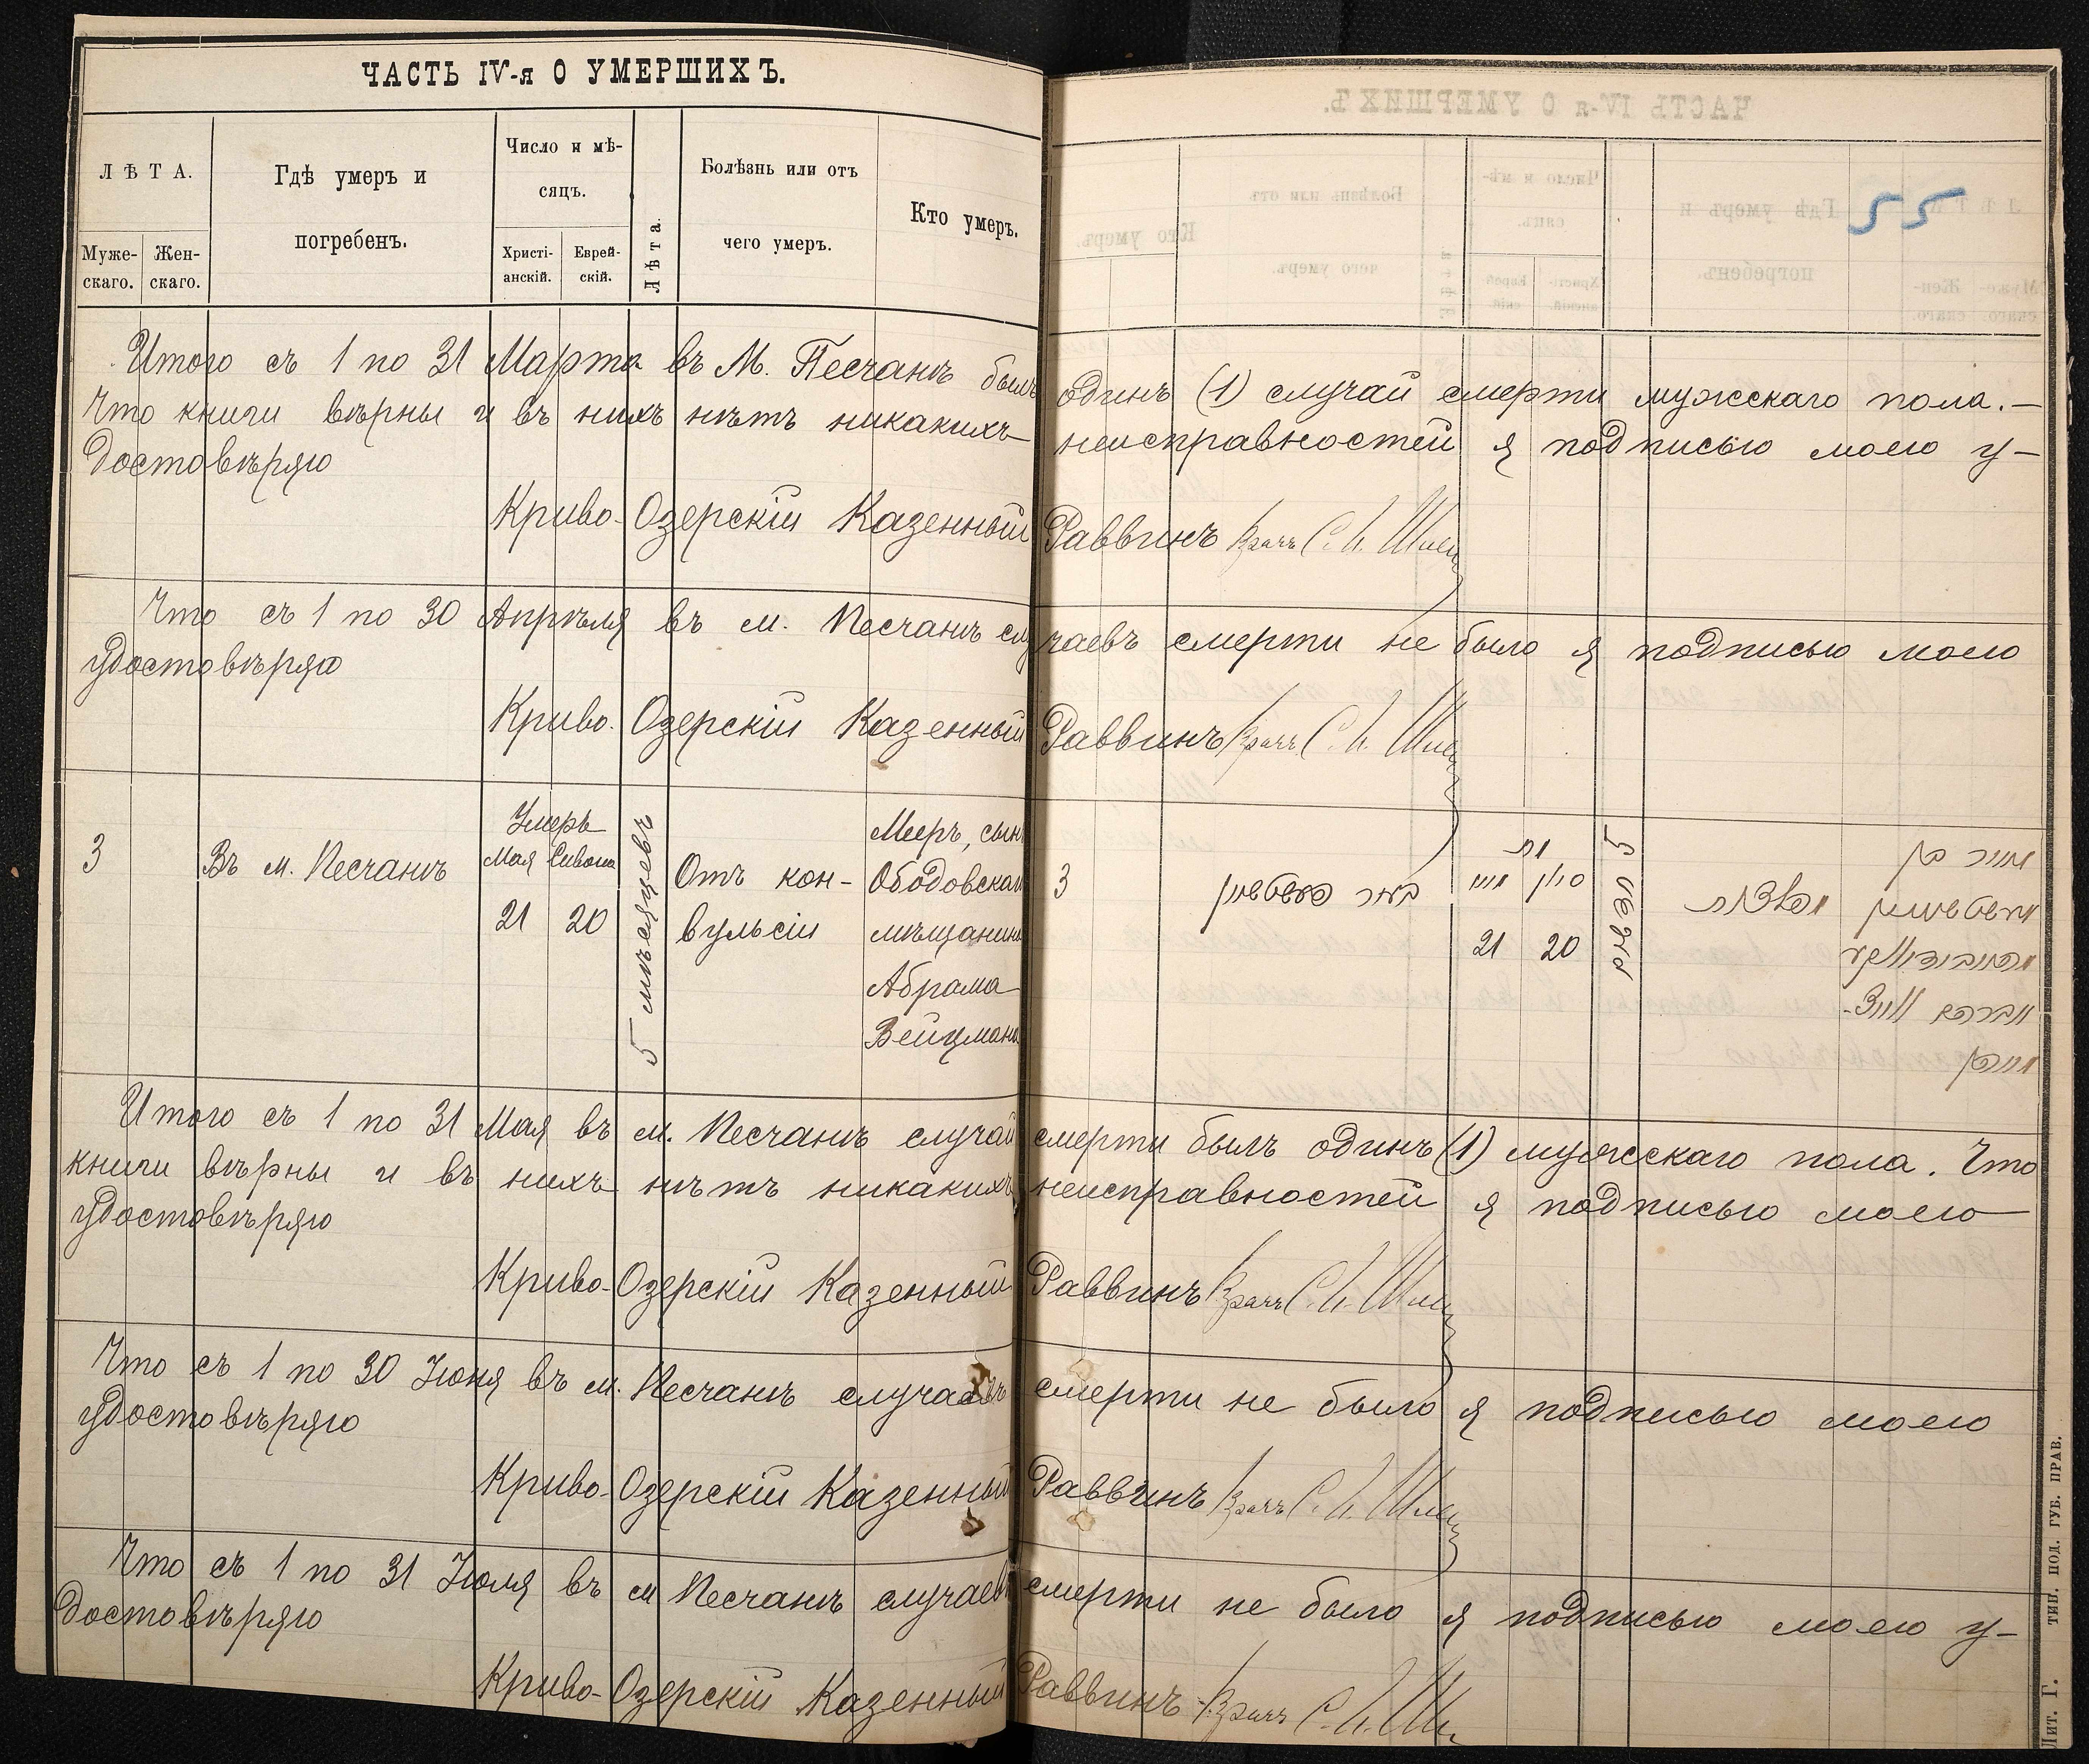 ЧАСТЬ IV-я О УМЕРШИХЪ.
ЛѢТА.
Муже-
скаго.
Жен-
скаго.
Гдѣ умеръ и
погребенъ.
Число и мѣ-
сяцъ.
Христі-
анскій.
Еврей-
скій.
Лѣта.
Болѣзнь или отъ
чего умеръ.
Кто умеръ.
55
Итого съ 1 по 31 Марта въ М. Песчанѣ былъ одинъ (1) случай смерти мужскаго пола.—
Что книги вѣрны и въ нихъ нѣтъ никакихъ неисправностей я подписью моею у-
достовѣряю
Криво-Озерскій Казенный Раввинъ Врачъ С. И.
Что съ 1 по 30 Апрѣля въ м. Песчанѣ случаевъ смерти не было я подписью моею
удостовѣряю
Криво-Озерскій Казенный Раввинъ Врачъ С. И.
3
Въ м. Песчанѣ
Умеръ
Мая Сивона
21 20
5 мѣсяцевъ
Отъ кон-
вульсіи
Мееръ, сынъ
Ободовскаго
мѣщанина
Абрама
Вейцмана
3
מת
מאי סיון
21 20
5
מאיר בן
אברהם ווייצ-
מאן
Итого съ 1 по 31 Мая въ м. Песчанѣ случай смерти былъ одинъ (1) мужскаго пола. Что
книги вѣрны и въ нихъ нѣтъ никакихъ неисправностей я подписью моею
удостовѣряю
Криво-Озерскій Казенный Раввинъ Врачъ С. И.
Что съ 1 по 30 Іюня въ м. Песчанѣ случаевъ смерти не было я подписью моею
удостовѣряю
Криво-Озерскій Казенный Раввинъ Врачъ С. И.
Что съ 1 по 31 Іюля въ м Песчанѣ случаевъ смерти не было я подписью моею у-
достовѣряю
Криво-Озерскій Казенный Раввинъ Врачъ С. И.
Лит. Г. ТИП. ПОД. ГУБ. ПРАВ.